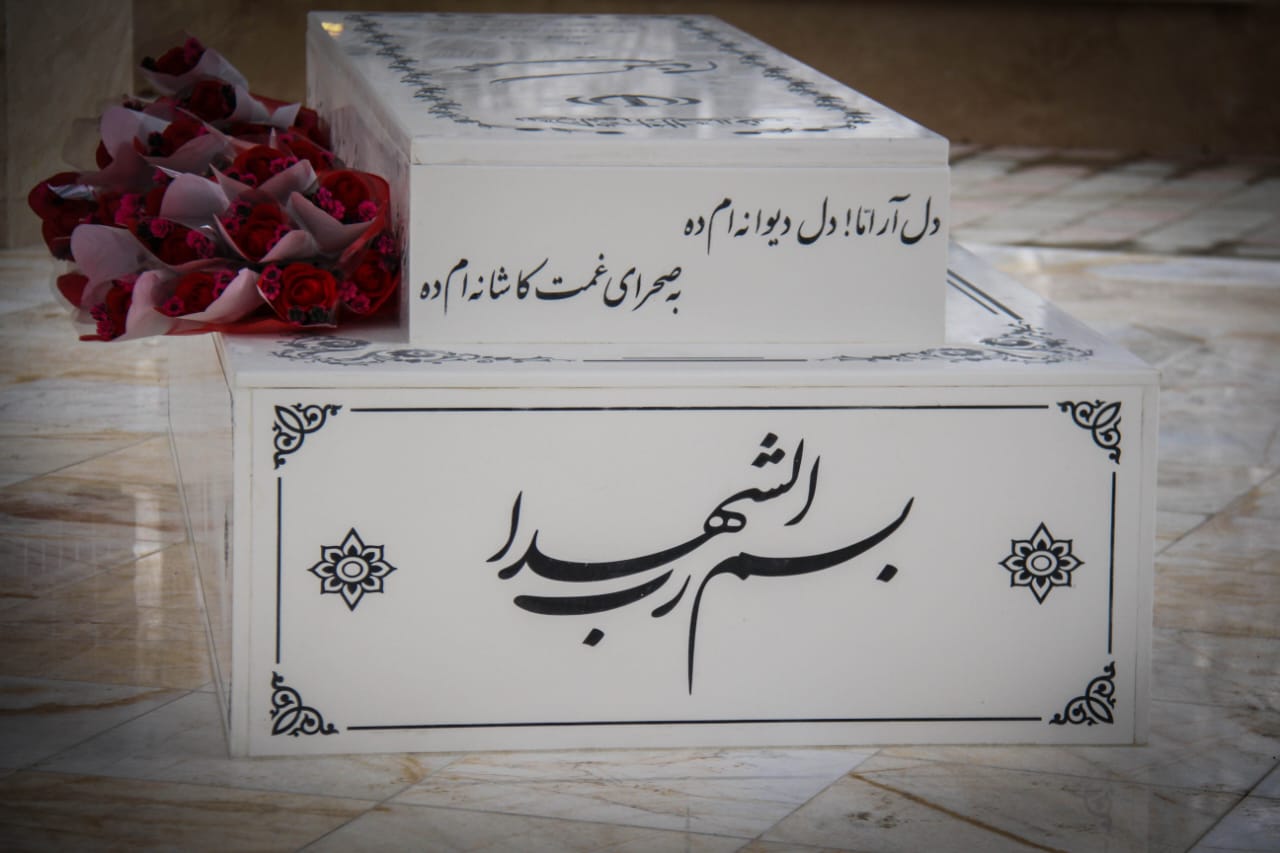 دل آراما! دل دیوانه ام ده
به صحرای غمت کاشانه ام ده
بسم رب الشهدا